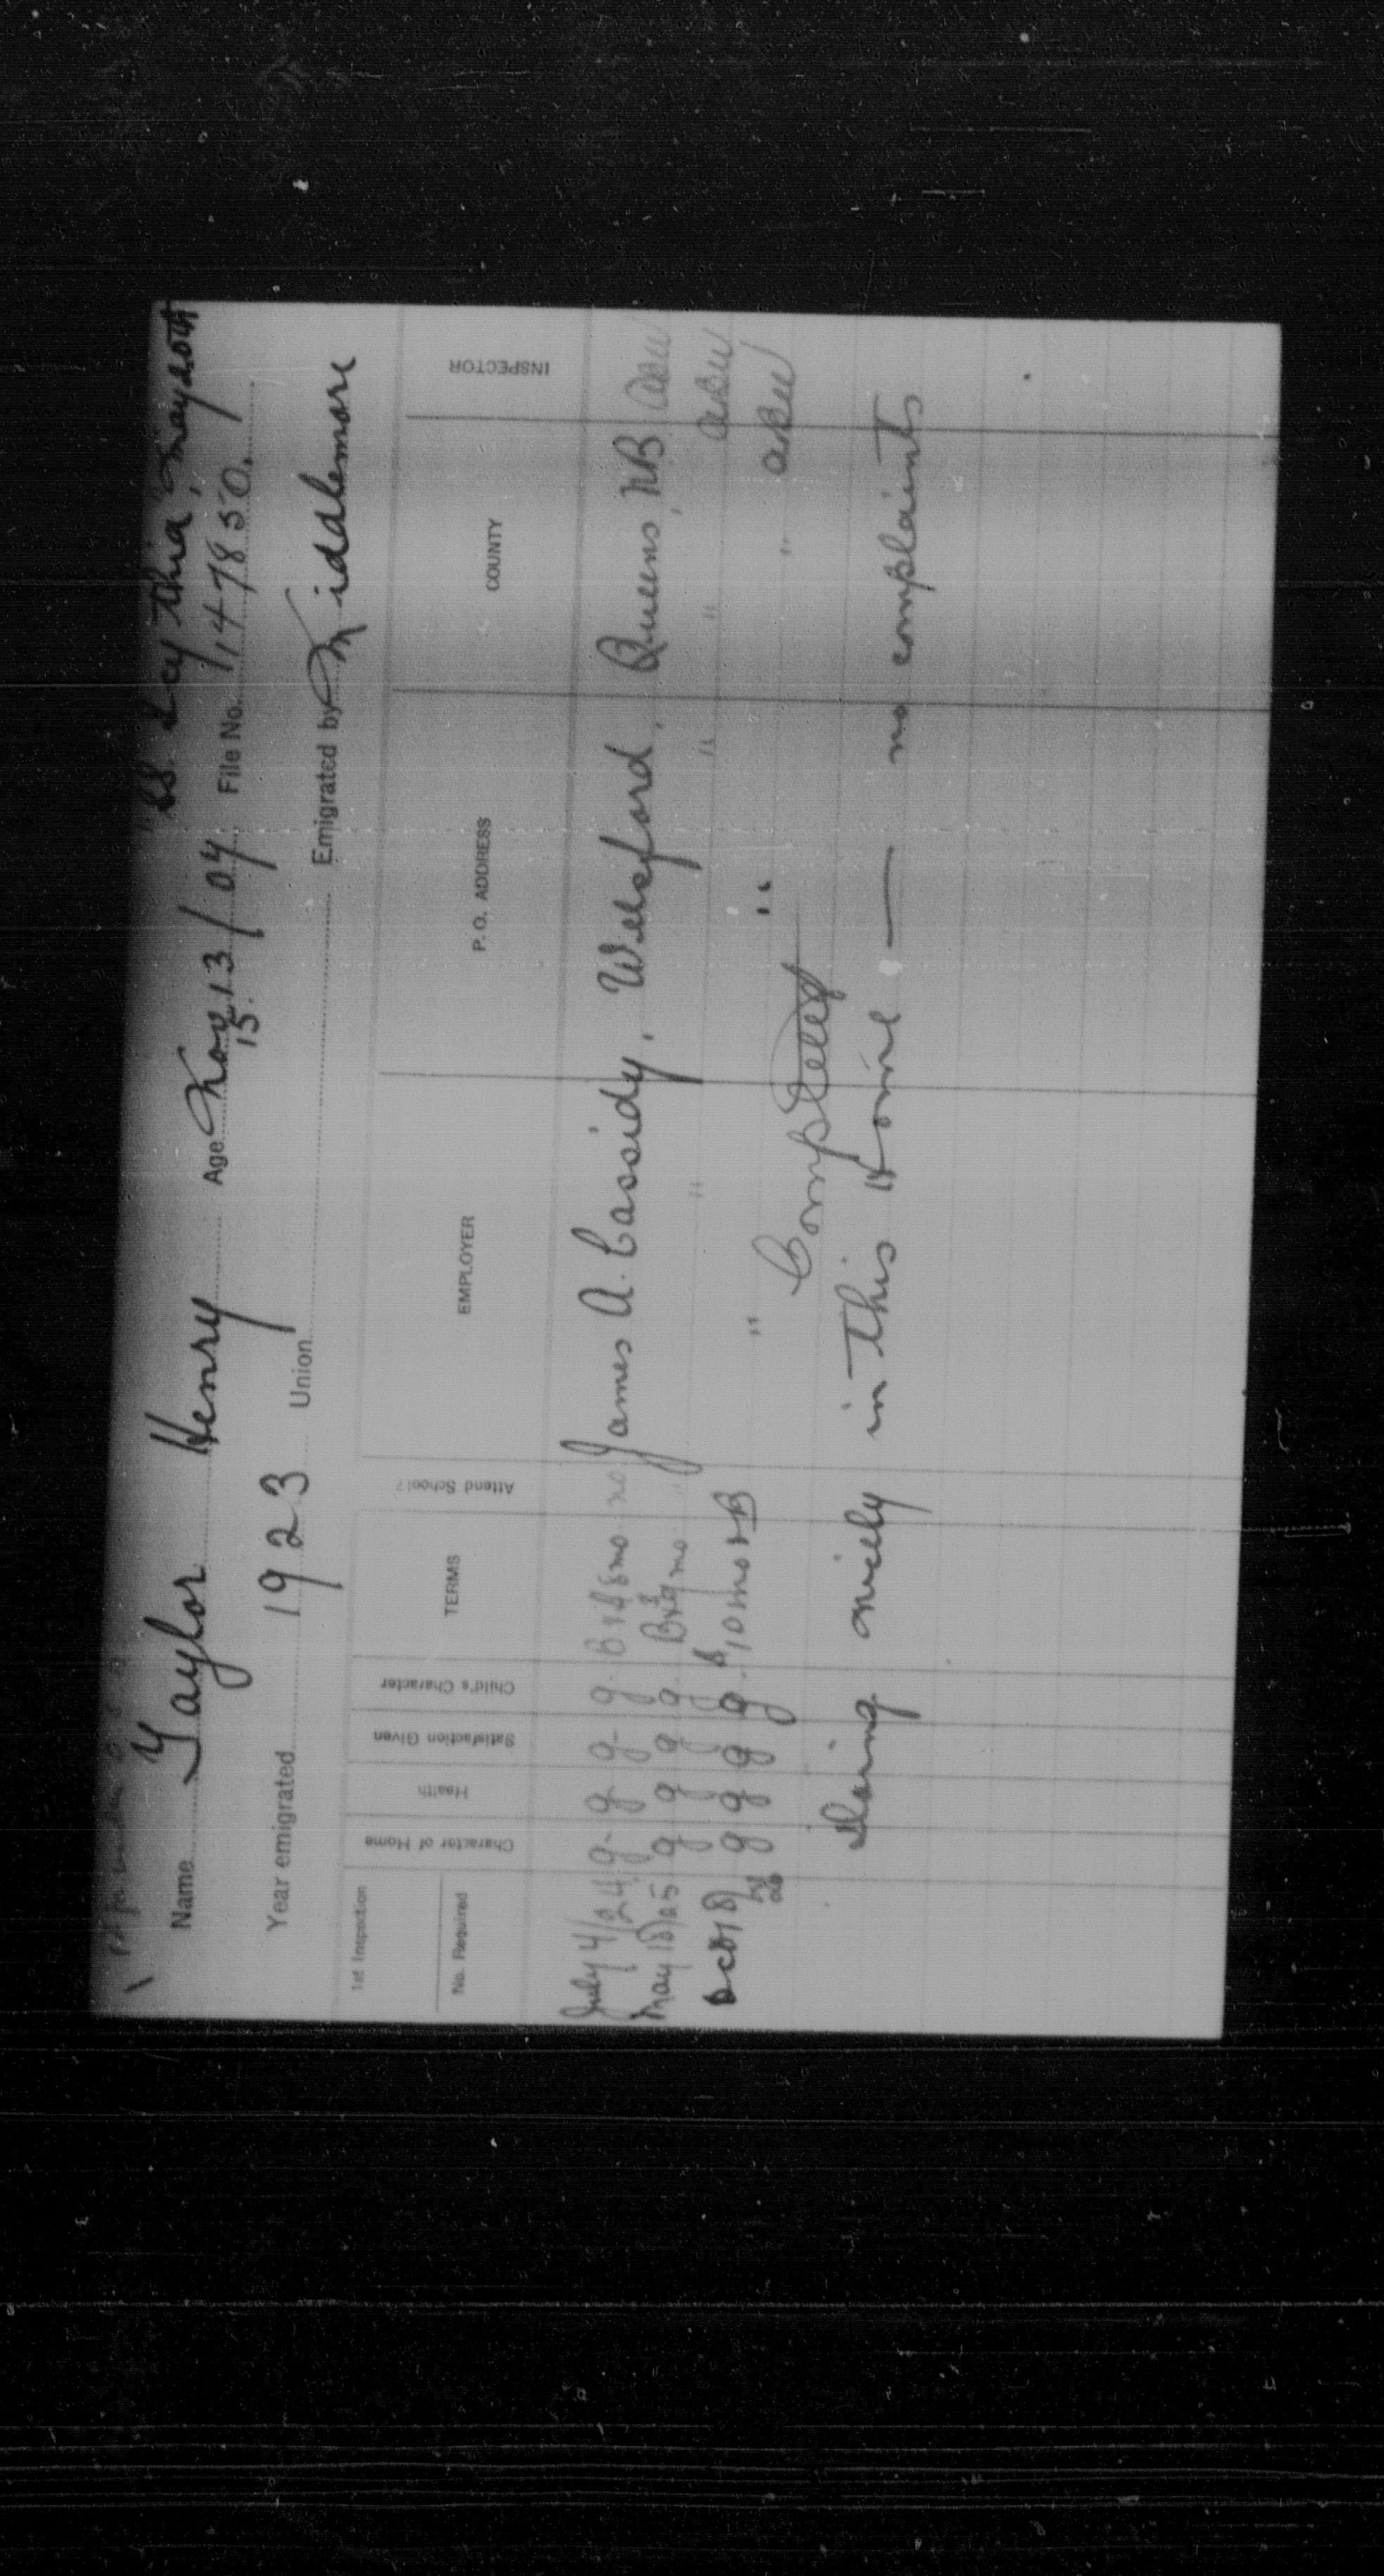 S.S. Scythia, May 20th
Name Taylor Henry Age Nov. 13/07 File No. 1,47850.
15.
Year emigrated 1923 Union Emigrated by Middlemore
1st Inspection
No. Required
Character of Home
Health
Satisfaction Given
Child's Character
TERMS
Attend School?
EMPLOYER
P. O. ADDRESS
COUNTY
INSPECTOR
July 4/24 g- g- g- g. B & $8 mo no James A. Cassidy, Welsford, Queens, NB
May 18/25 g g g g. B & 9 mo " " " "
Oct 18/26 g g g g. $10 mo & B " " "
Completed
Doing nicely in this Home — no complaints